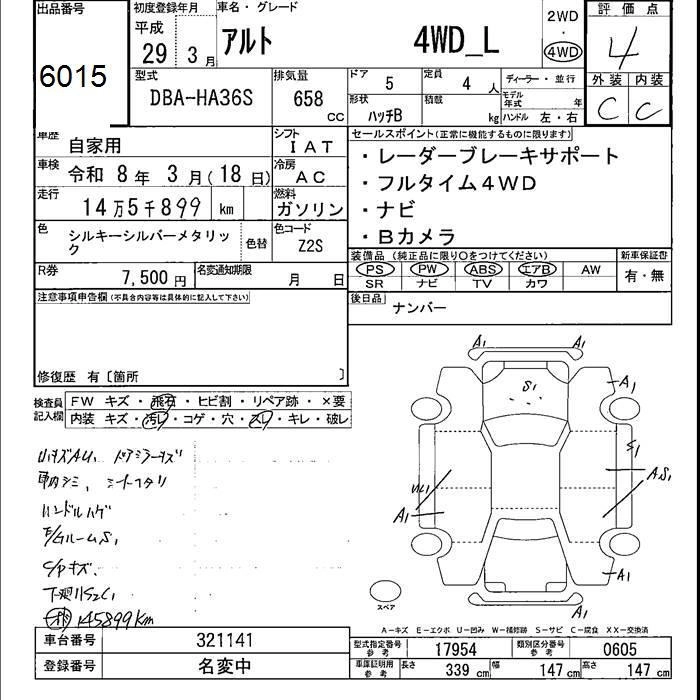 出品番号
6015
初度登録年月
平成
29 3 月
車名・グレード
アルト 4WD_L
2WD
・
4WD
評価点
4
型式
DBA-HA36S
排気量
658
CC
ドア 5
定員 4 人
形状 ハッチB
積載 kg
ディーラー・並行
モデル年式 年
ハンドル 左・右
外装 内装
C C
車歴 自家用
シフト IAT
車検 令和 8 年 3 月(18 日)
冷房 AC
走行
14万5千899 km
燃料
ガソリン
色
シルキーシルバーメタリック
色替
色コード
Z2S
R券
7,500 円
名変通知期限
月 日
セールスポイント(正常に機能するものに限ります)
・レーダーブレーキサポート
・フルタイム4WD
・ナビ
・Bカメラ
装備品(純正品に限り○をつけてください)
新車保証書
PS PW ABS エアB AW
有・無
SR ナビ TV カワ
後日品
ナンバー
注意事項申告欄(不具合内容等は具体的に記入して下さい)
修復歴 有〔箇所 〕
検査員
記入欄
FW キズ・飛石・ヒビ割・リペア跡・×要
内装 キズ・汚レ・コゲ・穴・スレ・キレ・破レ
ドアミラーキズ
車内シミ、シートヘタリ
ハンドルハゲ
E/GルームS1
C/Pキズ.
145899km
A1 A1
S1
A1
S1
AS1
A1
A1
A1
スペア
A-キズ E-エクボ U-凹み W-補修跡 S-サビ C-腐食 XX-交換済
車台番号 321141
登録番号 名変中
型式指定番号
参考
17954
類別区分番号
参考
0605
車庫証明用
参考
長さ 339 cm 幅 147 cm 高さ 147 cm